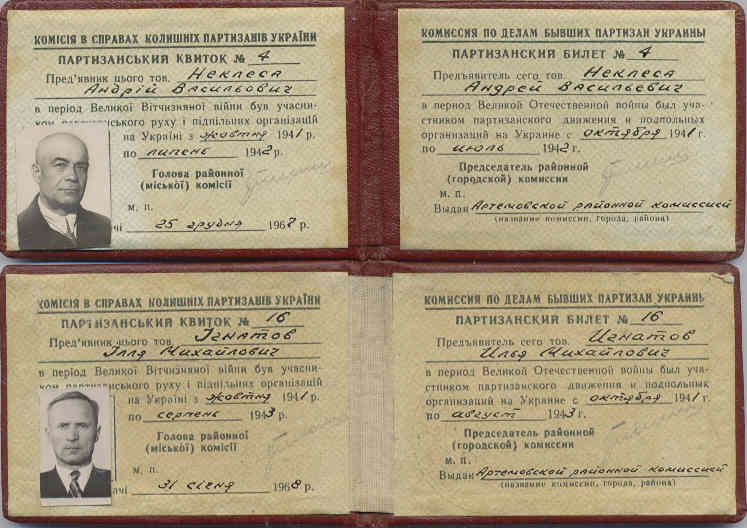 КОМІСІЯ В СПРАВАХ КОЛИШНІХ ПАРТИЗАНІВ УКРАЇНИ
ПАРТИЗАНСЬКИЙ КВИТОК № 4
Пред'явник цього тов. Неклеса
Андрій Васильович
в період Великої Вітчизняної війни був учасни-
ком партизанського руху і підпільних організацій
на Україні з жовтня 1941 р.
по липень 1942 р.
Голова районної
(міської) комісії
м. п.
чі 25 грудня 1967 р.
КОМИССИЯ ПО ДЕЛАМ БЫВШИХ ПАРТИЗАН УКРАИНЫ
ПАРТИЗАНСКИЙ БИЛЕТ № 4
Предъявитель сего тов. Неклеса
Андрей Васильевич
в период Великой Отечественной войны был уча-
стником партизанского движения и подпольных
организаций на Украине с октября 1941 г.
по июль 1942 г.
Председатель районной
(городской) комиссии
м. п.
Выдан Артемовской районной комиссией
(название комиссии, города, района)
КОМІСІЯ В СПРАВАХ КОЛИШНІХ ПАРТИЗАНІВ УКРАЇНИ
ПАРТИЗАНСЬКИЙ КВИТОК № 16
Пред'явник цього тов Ігнатов
Ілля Михайлович
в період Великої Вітчизняної війни був учасни-
ком партизанського руху і підпільних організацій
на Україні з жовтня 1941 р.
по серпень 1943 р.
Голова районної
(міської) комісії
м. п.
чі 31 січня 1968 р.
КОМИССИЯ ПО ДЕЛАМ БЫВШИХ ПАРТИЗАН УКРАИНЫ
ПАРТИЗАНСКИЙ БИЛЕТ № 16
Предъявитель сего тов. Игнатов
Илья Михайлович
в период Великой Отечественной войны был уча-
стником партизанского движения и подпольных
организаций на Украине с октября 1941 г.
по август 1943 г.
Председатель районной
(городской) комиссии
м. п.
Выдан Артемовской районной комиссией
(название комиссии, города, района)